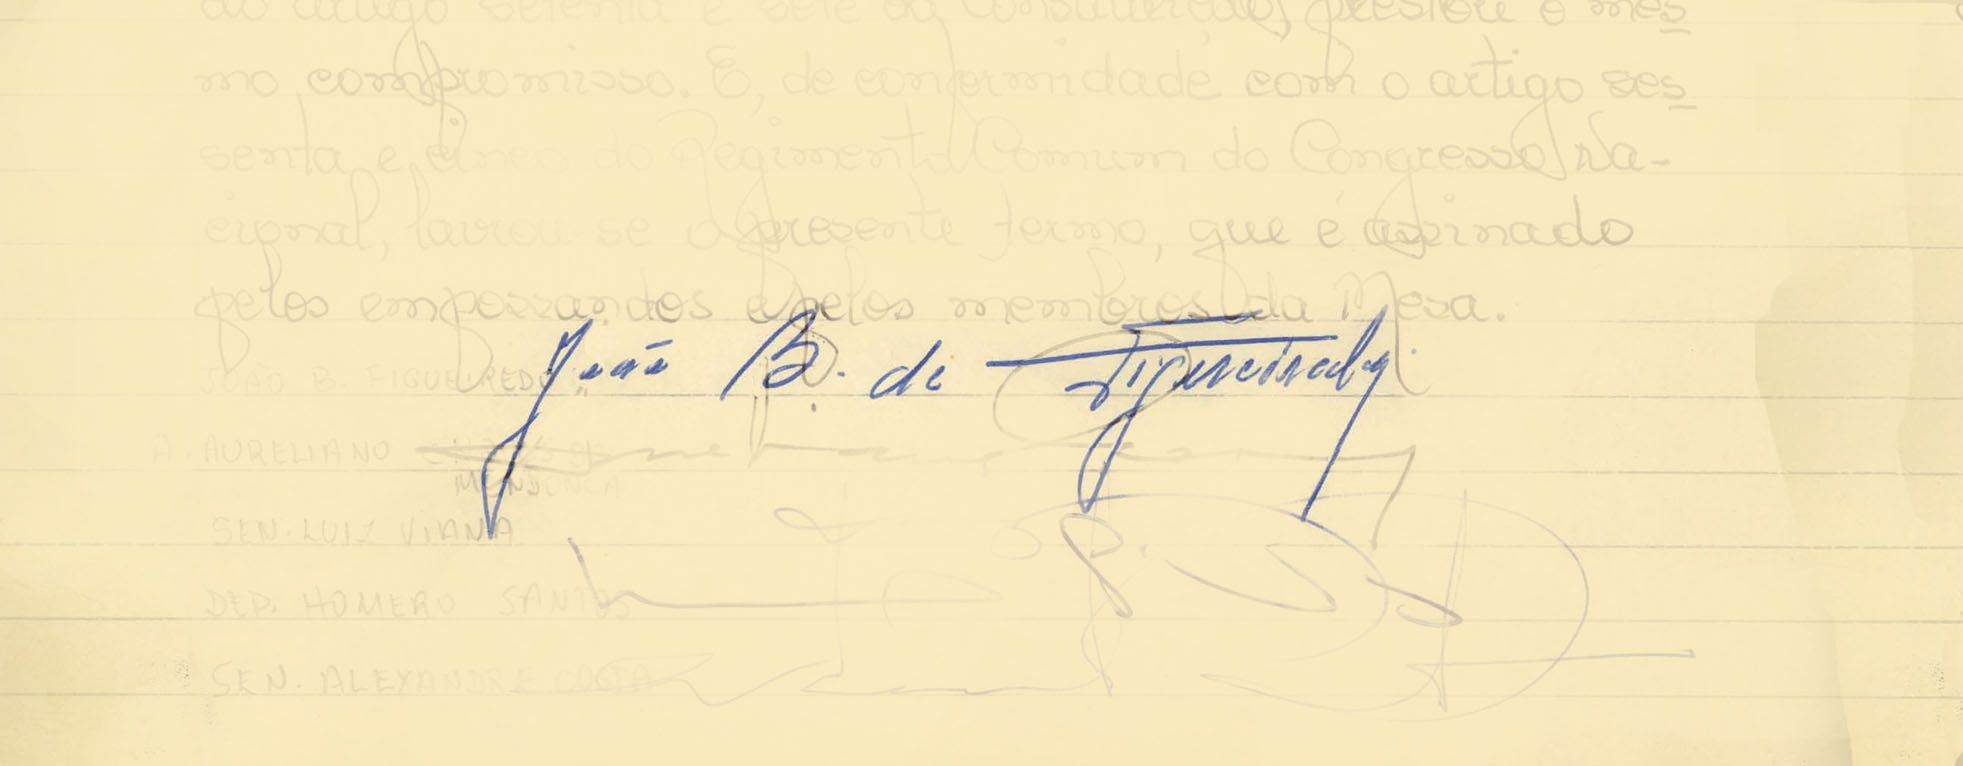 do artigo setenta e sete da Constituição, prestou o mes
mo compromisso. E, de conformidade com o artigo ses
senta e cinco do Regimento Comum do Congresso Na-
cional, lavrou-se o presente termo, que é assinado
pelos empossandos e pelos membros da Mesa.
João B. de Figueiredo
JOÃO B FIGUEIREDO
A. AURELIANO CHAVES DE
MENDONÇA
SEN. LUIZ VIANA
DEP. HOMERO SANTOS
SEN. ALEXANDRE COSTA